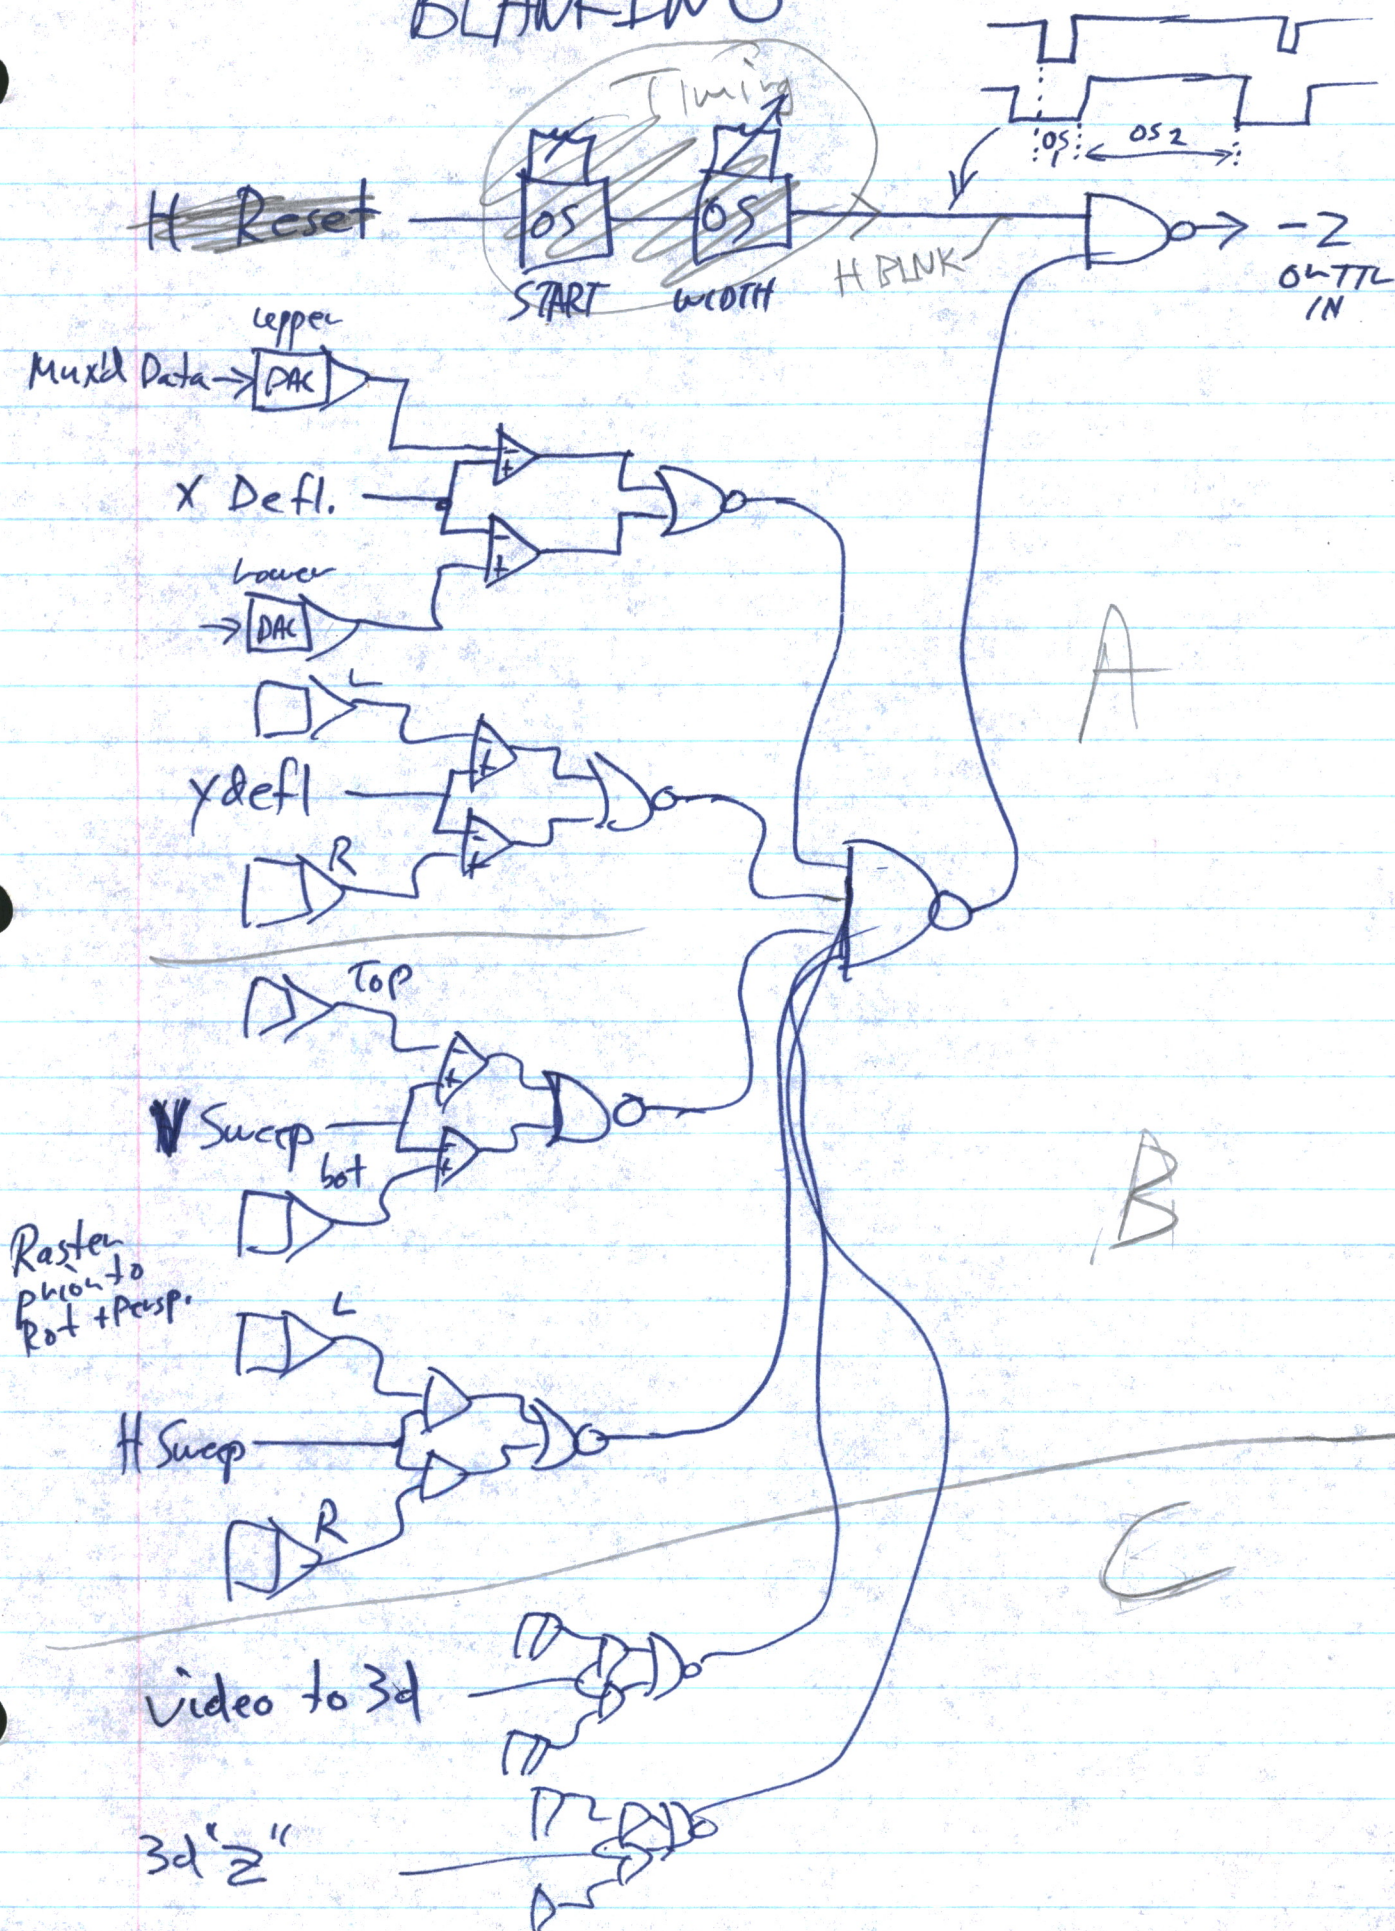 BLANKING
Timing
OS1 OS2
H Reset OS OS
H BLNK
-Z
or TTL
IN
START WIDTH
upper
Mux'd Data → DAC
- +
X Defl.
- +
Lower
→ DAC
L
- +
Y defl
- +
R
A
Top
- +
V Sweep
- +
bot
B
Raster
prior to
Rot + Persp.
L
H Sweep
R
C
video to 3d
3d "Z"